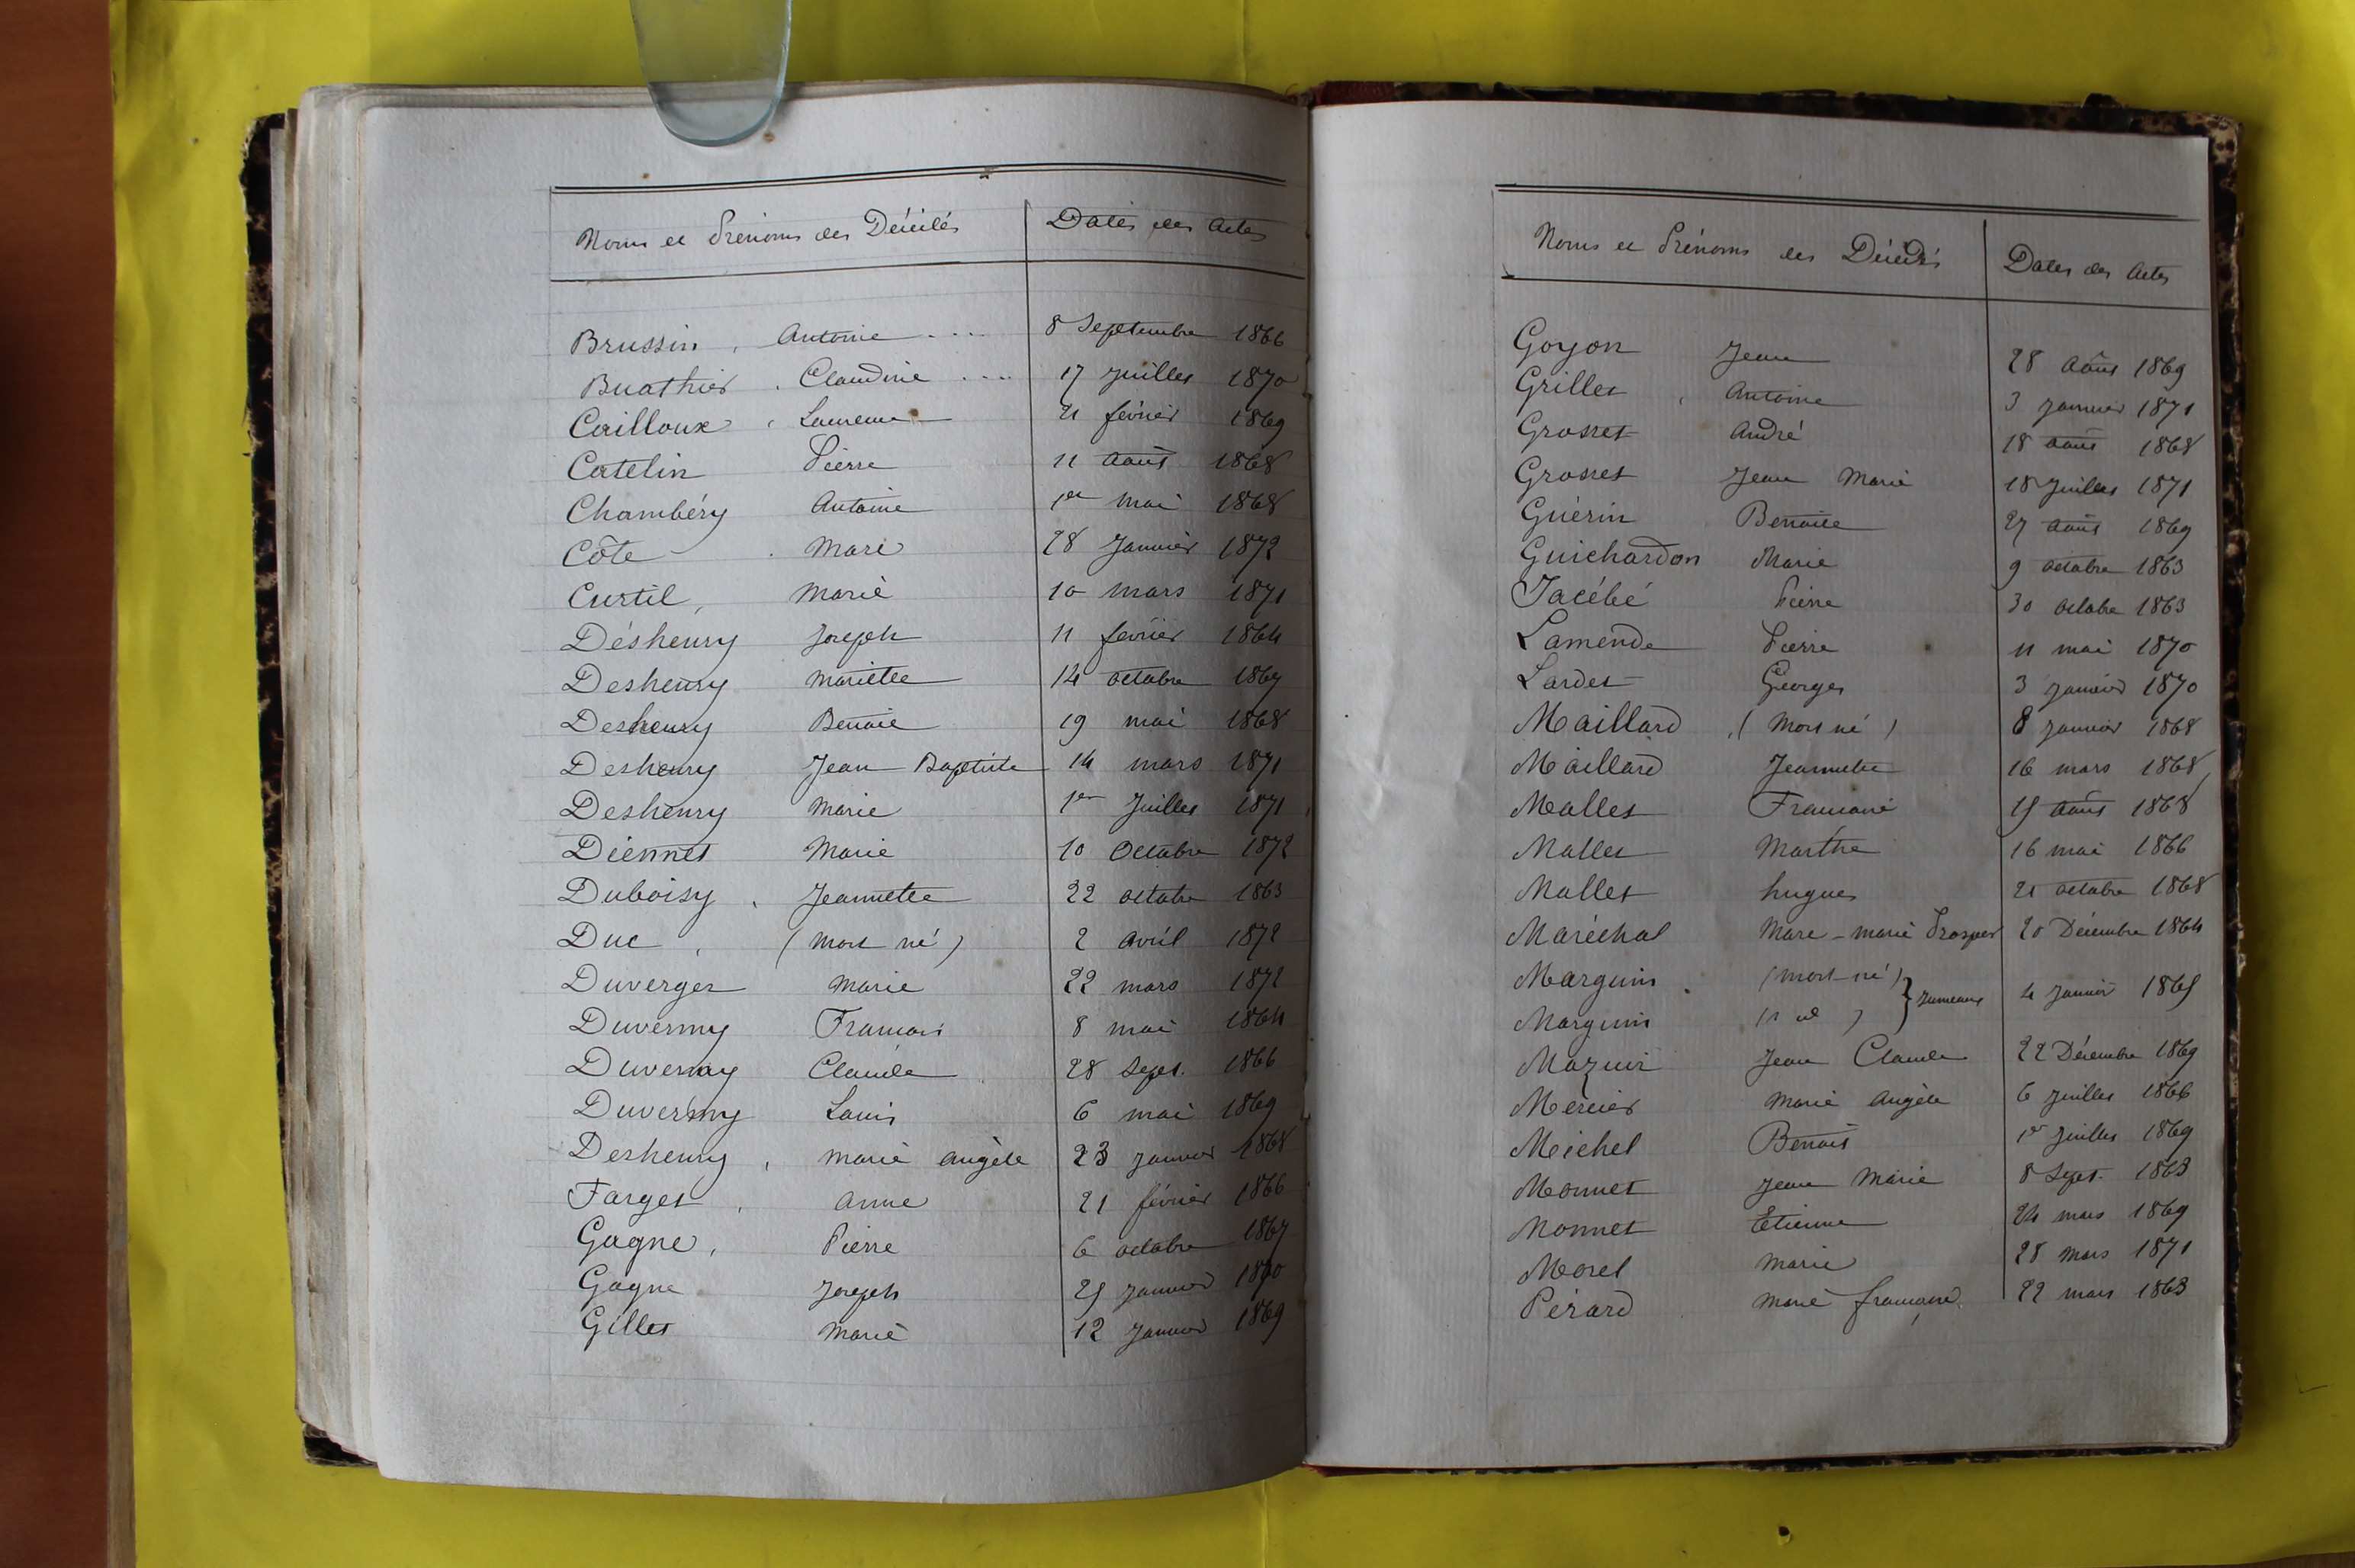 Noms et Prénoms des Décédés Dates des Actes
Brussin, Antoine .... 8 Septembre 1866
Buathier, Claudine .... 17 Juillet 1870
Cailloux, Laurence 21 février 1869
Catelin Pierre 11 août 1868
Chambéry Antoine 1er mai 1868
Côte Marie 28 Janvier 1872
Curtil, Marie 10 mars 1871
Désheury Joseph 11 février 1864
Desheury Mariette 14 octobre 1867
Desheury Benoit 19 mai 1868
Desheury Jean Baptiste 14 mars 1871
Desheury Marie 1er Juillet 1871
Diennet Marie 10 Octobre 1872
Duboisy, Jeannette 22 octobre 1863
Duc, (mort né) 2 avril 1872
Duverger Marie 22 mars 1872
Duvernay François 8 mai 1864
Duvernay Claude 28 Sept. 1866
Duvernay Louis 6 mai 1869
Desheury, Marie Angèle 23 Janvier 1868
Farget, Anne 21 février 1866
Gagne, Pierre 6 octobre 1867
Gagne Joseph 25 Janvier 1870
Gillet Marie 12 Janvier 1869
Noms et Prénoms des Décédés Dates des Actes
Goyon Jean 28 août 1869
Grillet, Antoine 3 Janvier 1871
Grosset André 18 août 1868
Grosset Jean Marie 18 Juillet 1871
Guérin Benoite 27 août 1869
Guichardon Marie 9 octobre 1863
Jacébé Pierre 30 octobre 1863
Lamende Pierre 11 mai 1870
Lardet Georges 3 Janvier 1870
Maillard, (mort né) 8 Janvier 1868
Maillard Jeannette 16 mars 1868
Mallet Françoise 15 août 1868
Mallet Marthe 16 mai 1866
Mallet hugues 21 octobre 1868
Maréchal Marc-Marie Prosper 20 Décembre 1864
Marguin (mort-né) } Jumeaux 4 Janvier 1865
Marguin (id)
Mazuir Jean Claude 22 Décembre 1869
Mercier Marie Angèle 6 Juillet 1866
Michel Benoit 1er Juillet 1869
Monnet Jean Marie 8 Sept. 1863
Monnet Etienne 24 mars 1869
Morel Marie 28 mars 1871
Pérard Marie françoise 22 mars 1863